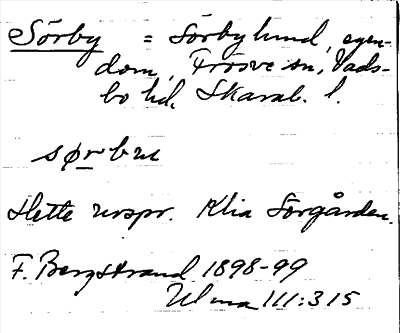 Sörby = Sörbylund, egen-
dom, Frösve sn, Vads-
bo hd. Skarab. l.
sørbu
Hette urspr. Klia Sörgården.
F. Bergstrand 1898-99
Ulma 111:315